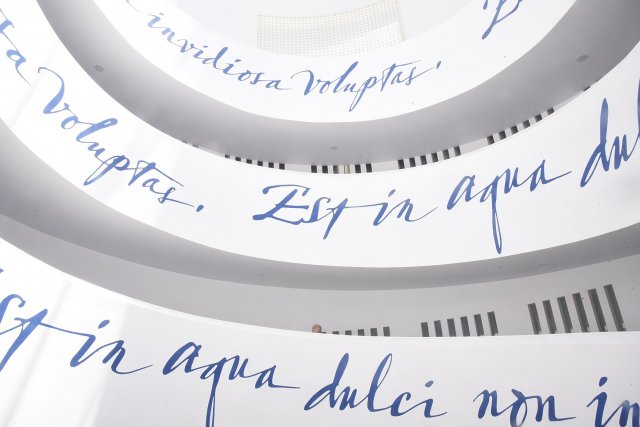 n invidiosa voluptas. E
sa voluptas. Est in aqua dul
st in aqua dulci non in